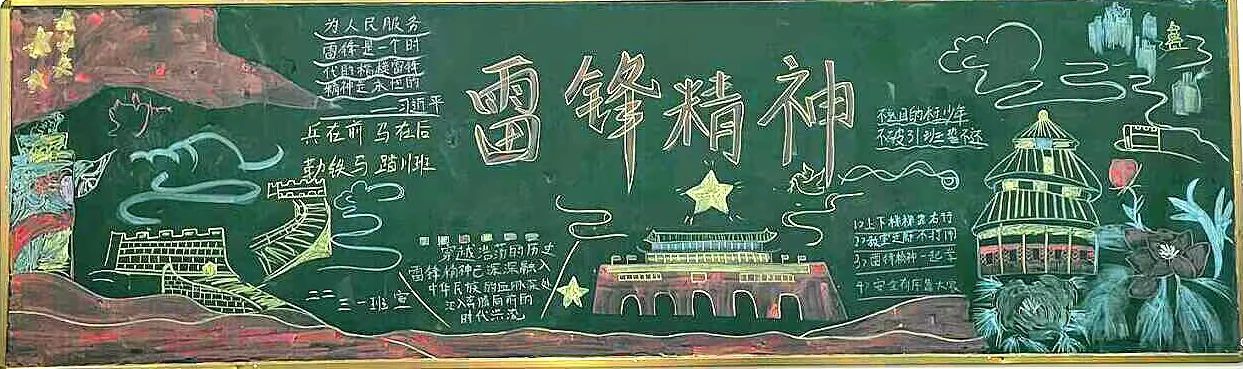 为人民服务
雷锋是一个时
代的楷模雷锋
精神是永恒的
——习近平
兵在前 马在后
勒铁马 踏川班
雷锋精神
穿越浩荡的历史
雷锋精神已深深融入
中华民族的血脉深处
汇入奔腾向前的
时代洪流
二二三一班宣
不负目的 少年
不破 不还
1>上下楼梯靠右行
2> 不打闹
3>雷锋精神一起享
4>安全有序